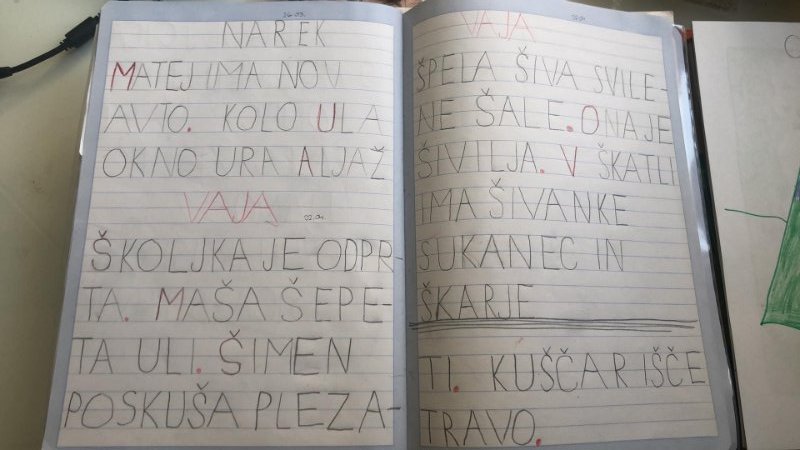 26.03.
NAREK
MATEJ IMA NOV
AVTO. KOLO ULA
OKNO URA ALJAŽ
VAJA
02.04.
ŠKOLJKA JE ODPR-
TA. MAŠA ŠEPE-
TA ULI. ŠIMEN
POSKUŠA PLEZA-
VAJA
ŠPELA ŠIVA SVILE-
NE ŠALE. ONA JE
ŠIVILJA. V ŠKATLI
IMA ŠIVANKE
SUKANEC IN
ŠKARJE
TI. KUŠČAR IŠČE
TRAVO.